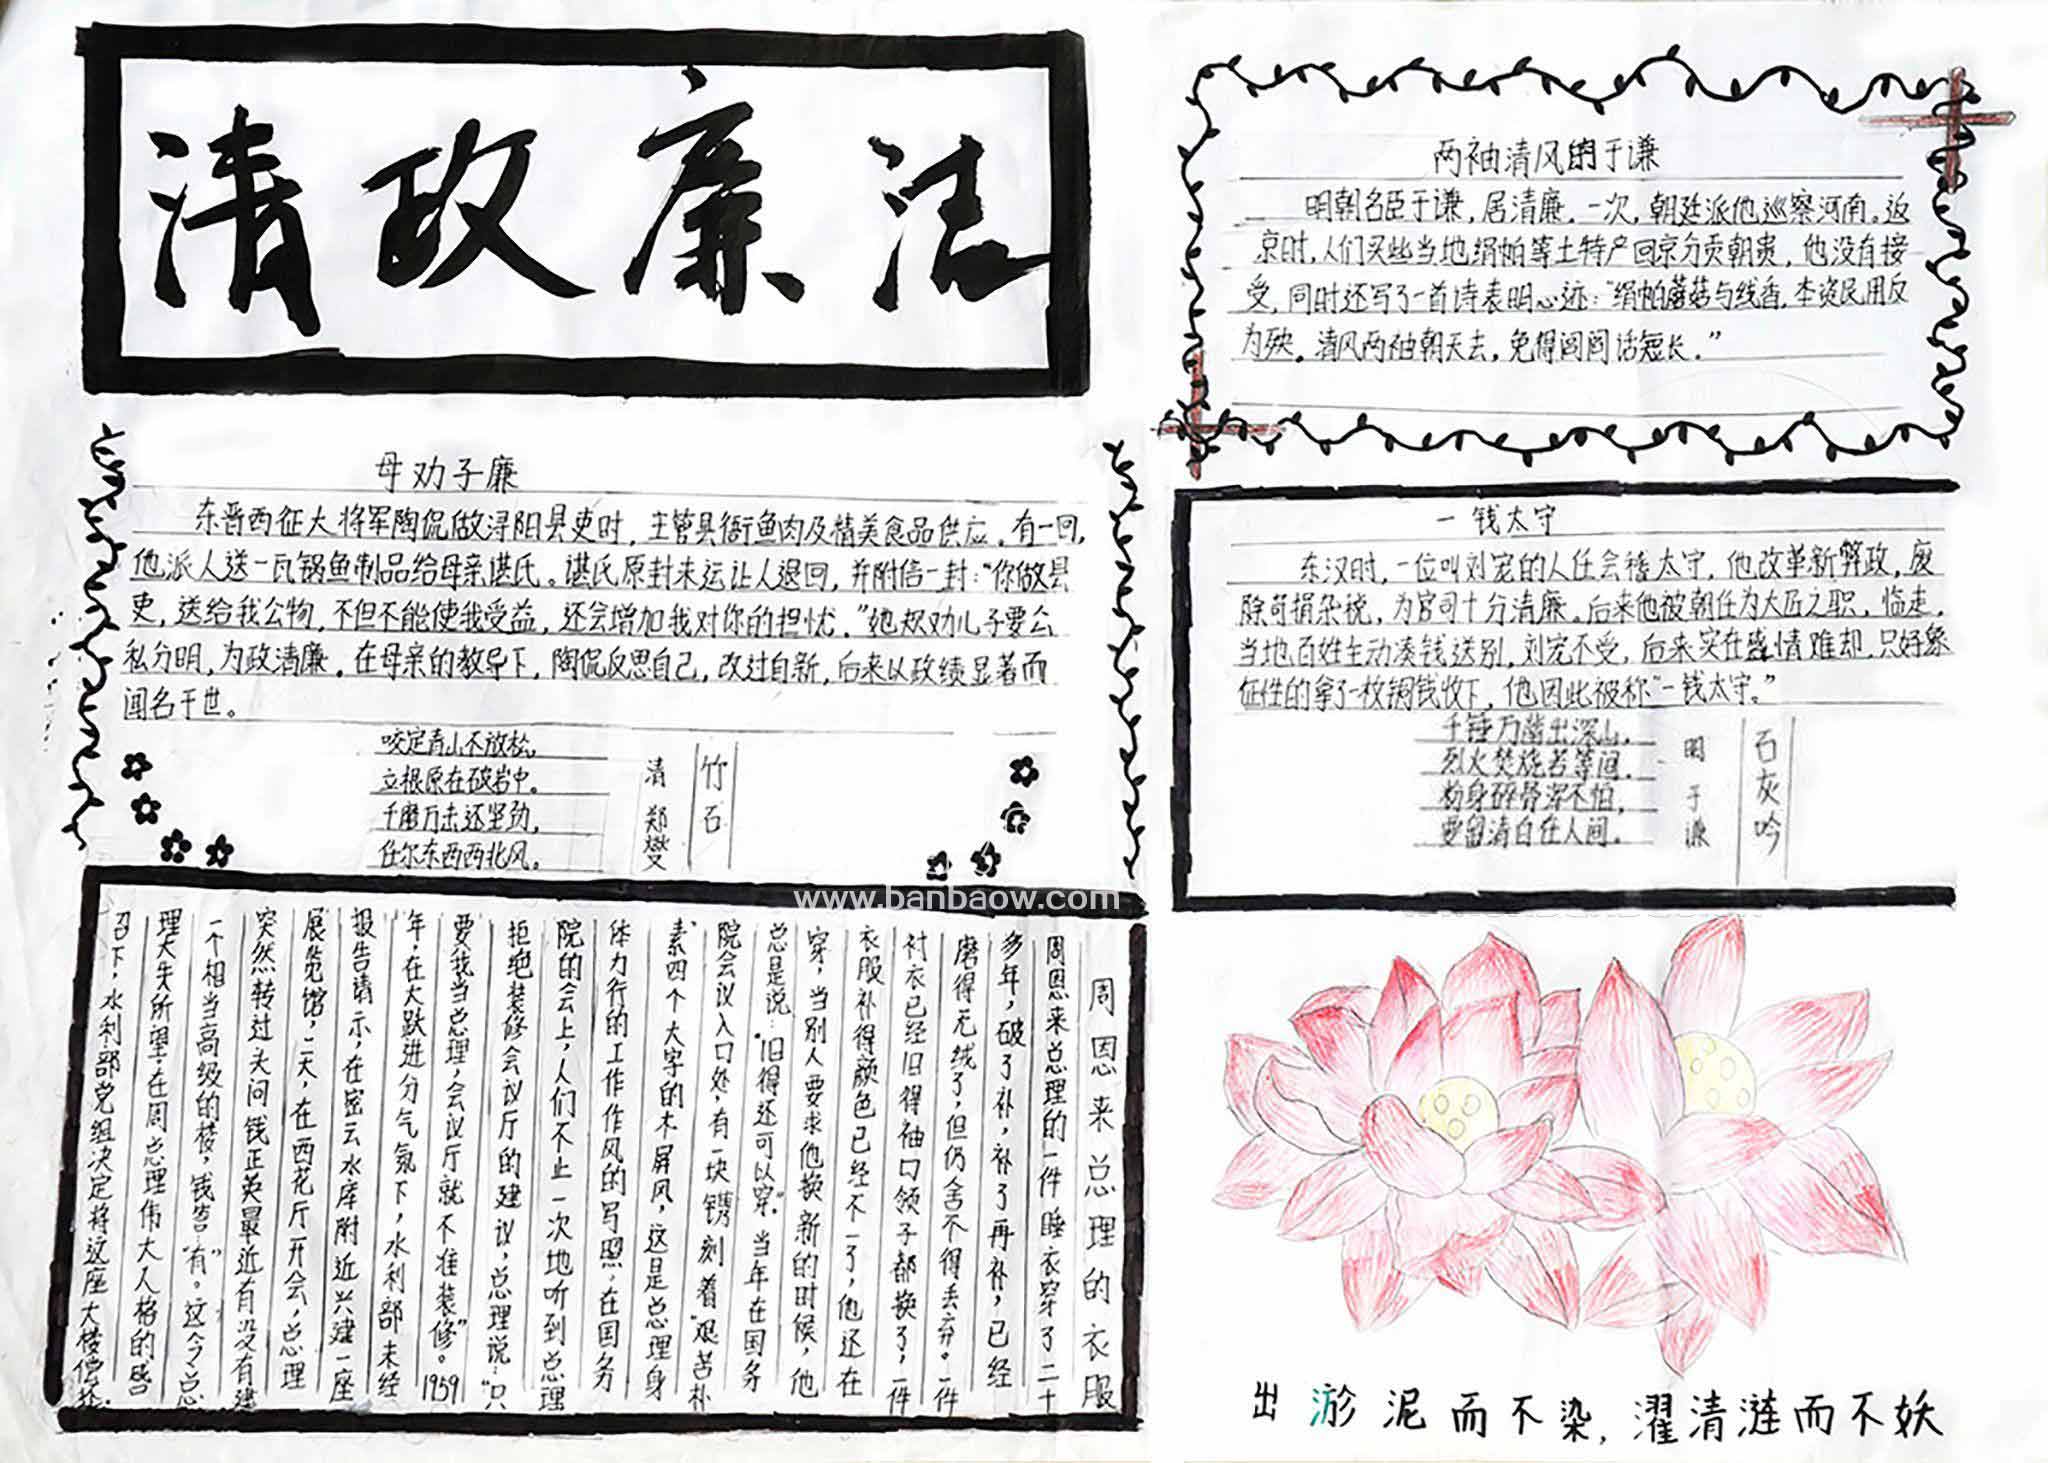 清政廉洁
母劝子廉
东晋西征大将军陶侃做浔阳县吏时，主管县衙鱼肉及精美食品供应。有一回，
他派人送一瓦锅鱼制品给母亲谌氏。谌氏原封未运让人退回，并附信一封：“你做县
吏，送给我公物，不但不能使我受益，还会增加我对你的担忧。”她规劝儿子要公
私分明，为政清廉。在母亲的教导下，陶侃反思自己，改过自新，后来以政绩显著而
闻名于世。
竹石
清 郑燮
咬定青山不放松，
立根原在破岩中。
千磨万击还坚劲，
任尔东西西北风。
周恩来总理的衣服
周恩来总理的一件睡衣穿了二十
多年，破了补，补了再补，已经
磨得无绒了，但仍舍不得丢弃。一件
衬衣已经旧得袖口领子都换了，一件
衣服补得颜色已经不一了，他还在
穿，当别人要求他换新的时候，他
总是说：“旧得还可以穿”。当年在国务
院会议入口处，有一块镌刻着“艰苦朴
素四个大字的木屏风，这是总理身
体力行的工作作风的写照，在国务
院的会上，人们不止一次地听到总理
拒绝装修会议厅的建议，总理说：“只
要我当总理，会议厅就不准装修”。1959
年，在大跃进分气氛下，水利部未经
报告请示，在密云水库附近兴建一座
展览馆，二天，在西花厅开会，总理
突然转过头问钱正英最近有没有建
一个相当高级的楼，钱答：“有”。这令总
理大失所望，在周总理伟大人格的感
召下，水利部党组决定将这座大楼偿还。
两袖清风的于谦
明朝名臣于谦，居清廉。一次，朝廷派他巡察河南。返
京时，人们买些当地绢帕等土特产回京分贡朝贵，他没有接
受，同时还写了一首诗表明心迹：“绢帕蘑菇与线香，本资民用反
为殃。清风两袖朝天去，免得闾阎话短长。”
一钱太守
东汉时，一位叫刘宠的人任会稽太守，他改革新弊政，废
除苛捐杂税，为官司十分清廉。后来他被朝任为大匠之职，临走，
当地百姓主动凑钱送别，刘宠不受，后来实在盛情难却，只好象
征性的拿了一枚铜钱收下，他因此被称“一钱太守。”
石灰吟
明 于谦
千锤万凿出深山，
烈火焚烧若等闲。
粉身碎骨浑不怕，
要留清白在人间。
出淤泥而不染，濯清涟而不妖
www.banbaow.com